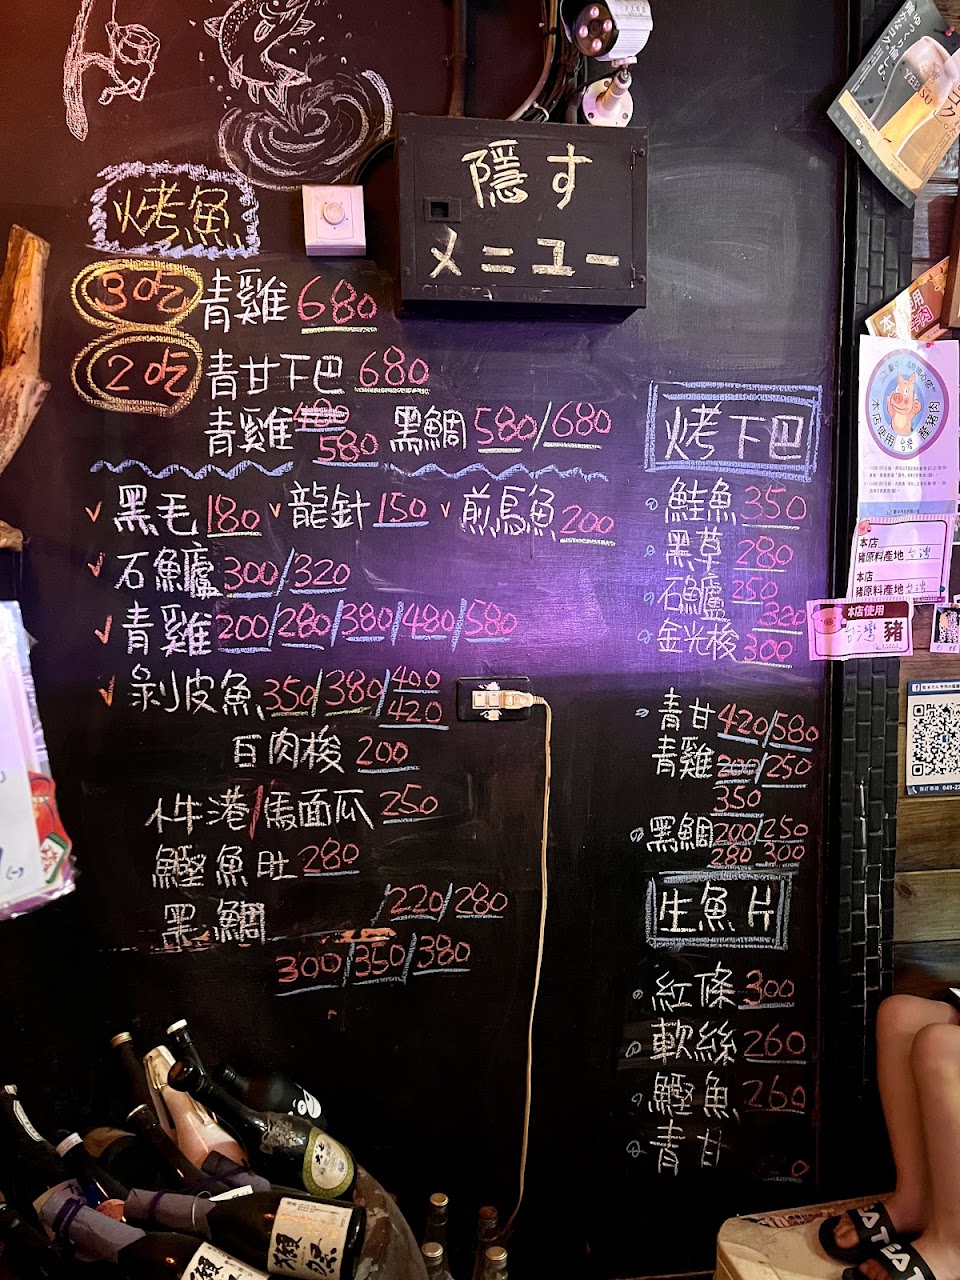 隱す
メニュー
烤魚
3吃 青雞 680
2吃 青甘下巴 680
青雞 480 580 黑鯛 580/680
黑毛 180 龍針 150 煎馬魚 200
石鱸 300/320
青雞 200/280/380/480/580
剝皮魚 350/380/400 420
百肉梭 200
牛港/馬面瓜 250
鰹魚肚 280
黑鯛 /220/280
300/350/380
烤下巴
鮭魚 350
黑草 280
石鱸 250 320
金光梭 300
青甘 420/580
青雞 200/250
350
黑鯛 200/250
280 300
生魚片
紅條 300
軟絲 260
鰹魚 260
青甘
YEBISU
本店使用
台灣
產豬肉
本店
豬原料產地 台灣
本店
豬原料產地 台灣
本店使用
台灣 豬
獺祭